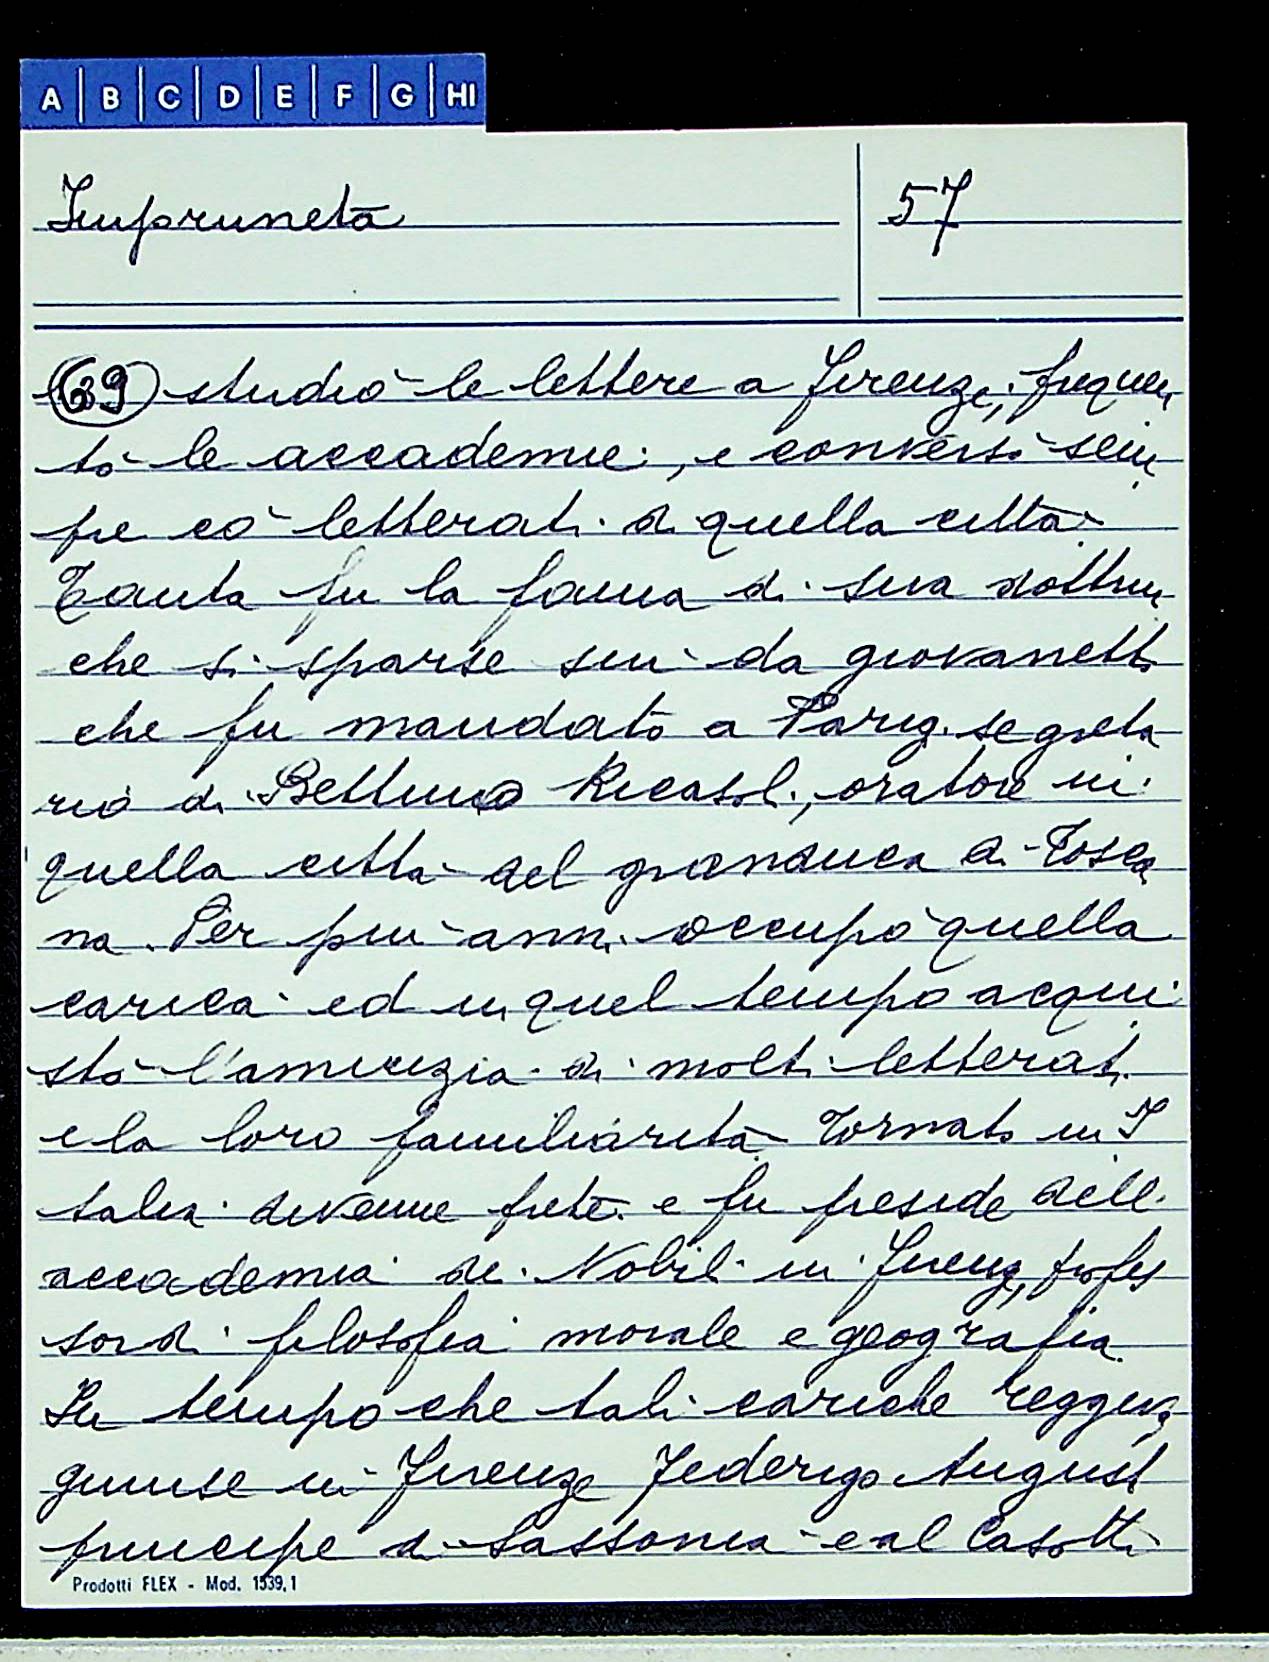 A B C D E F G HI
Impruneta
57
(69) studiò le lettere a Firenze, frequen
tò le accademie, e conversò sem
pre co' letterati di quella città.
Tanta fu la fama di sua dottrin
che si sparse sin da giovanetto
che fu mandato a Parigi segreta
rio di Bettino Ricasoli, oratore in
quella città del granduca di Tosca
na. Per più anni occupò quella
carica ed in quel tempo acqui
stò l'amicizia di molti letterati
e la loro familiarità. Tornato in I
talia divenne prete e fu preside dell'
accademia dei Nobili in Firenze, profes
sor di filosofia morale e geografia.
In tempo che tali cariche reggeva
giunse in Firenze Federigo Augusto
principe di Sassonia e al Casotti
Prodotti FLEX - Mod. 1539,1